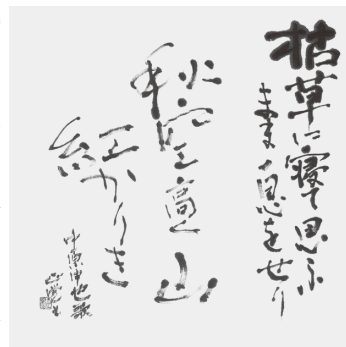 枯草に寝て思ふ
まま息をせり
秋空高く山
紅かりき
中原中也歌